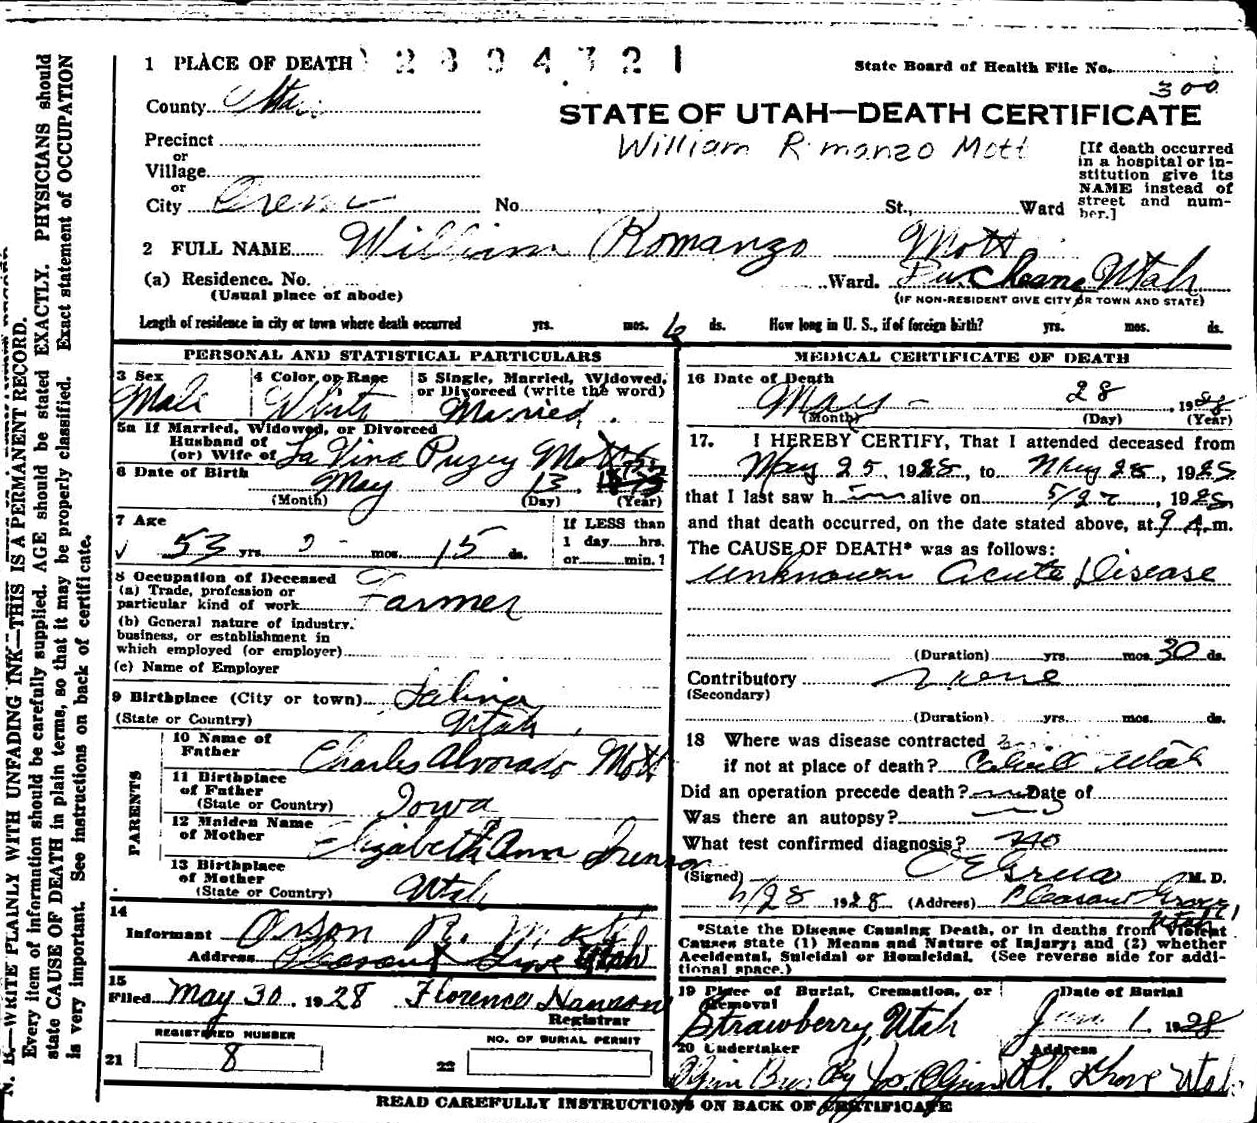 1 PLACE OF DEATH 2894321
State Board of Health File No.
300
County Utah
STATE OF UTAH—DEATH CERTIFICATE
William Romanzo Mott
Precinct
or
Village
or
City Orem No. St., Ward
[If death occurred
in a hospital or in-
stitution give its
NAME instead of
street and num-
ber.]
2 FULL NAME William Romanzo Mott
(a) Residence. No. Ward. Utah
(Usual place of abode)
(IF NON-RESIDENT GIVE CITY OR TOWN AND STATE)
Length of residence in city or town where death occurred yrs. mos. 6 ds. How long in U. S., if of foreign birth? yrs. mos. ds.
PERSONAL AND STATISTICAL PARTICULARS
3 Sex
Male
4 Color or Race
White
5 Single, Married, Widowed,
or Divorced (write the word)
Married
5a If Married, Widowed, or Divorced
Husband of
(or) Wife of LaVina Puzey Mott
6 Date of Birth
May 13
(Month) (Day) (Year)
7 Age
53 yrs. mos. 15 ds.
If LESS than
1 day hrs.
or min.?
8 Occupation of Deceased
(a) Trade, profession or
particular kind of work Farmer
(b) General nature of industry,
business, or establishment in
which employed (or employer)
(c) Name of Employer
9 Birthplace (City or town) Salina
(State or Country) Utah
PARENTS
10 Name of
Father Charles Alvorado Mott
11 Birthplace
of Father
(State or Country) Iowa
12 Maiden Name
of Mother Elizabeth Ann
13 Birthplace
of Mother
(State or Country) Utah
14
Informant Orson R. Mott
Address Pleasant Grove Utah
15
Filed May 30 1928 Florence Hanson
Registrar
REGISTERED NUMBER
21 8
NO. OF BURIAL PERMIT
22
MEDICAL CERTIFICATE OF DEATH
16 Date of Death
May 28, 1928
(Month) (Day) (Year)
17. I HEREBY CERTIFY, That I attended deceased from
May 25, 1928, to May 28, 1928
that I last saw him alive on 5/27, 1928,
and that death occurred, on the date stated above, at 9 A.m.
The CAUSE OF DEATH* was as follows:
unknown acute Disease
(Duration) yrs. mos. 30 ds.
Contributory None
(Secondary)
(Duration) yrs. mos. ds.
18 Where was disease contracted
if not at place of death? Utah
Did an operation precede death? no Date of
Was there an autopsy? no
What test confirmed diagnosis? no
(Signed) O E Grua M. D.
5/28 1928 (Address) Pleasant Grove,
Utah
*State the Disease Causing Death, or in deaths from Violent
Causes state (1) Means and Nature of Injury; and (2) whether
Accidental, Suicidal or Homicidal. (See reverse side for addi-
tional space.)
19 Place of Burial, Cremation, or
Removal
Strawberry, Utah
Date of Burial
June 1, 1928
20 Undertaker
Olpin Bros By Jos. Olpin
Address
Pl. Grove Utah
READ CAREFULLY INSTRUCTIONS ON BACK OF CERTIFICATE
N. B.—WRITE PLAINLY WITH UNFADING INK—THIS IS A PERMANENT RECORD.
Every item of information should be carefully supplied. AGE should be stated EXACTLY. PHYSICIANS should
state CAUSE OF DEATH in plain terms, so that it may be properly classified. Exact statement of OCCUPATION
is very important. See instructions on back of certificate.